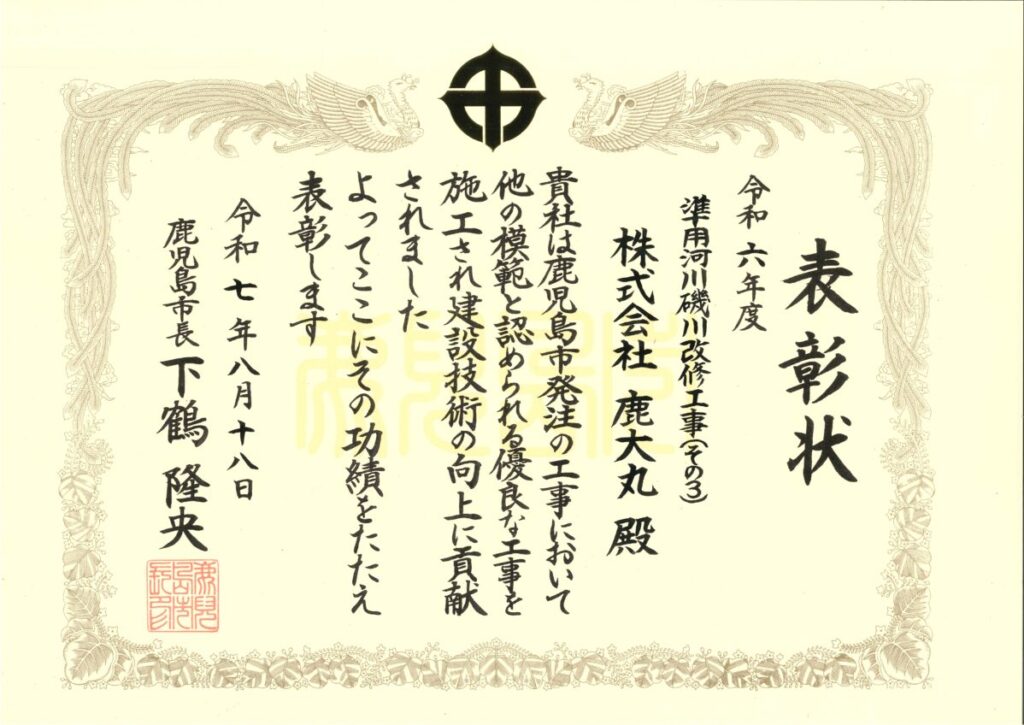 表彰状
令和六年度
準用河川磯川改修工事(その3)
株式会社 鹿大丸 殿
貴社は鹿児島市発注の工事において
他の模範と認められる優良な工事を
施工され建設技術の向上に貢献
されました
よってここにその功績をたたえ
表彰します
令和七年八月十八日
鹿児島市長 下鶴 隆央
鹿児島市長印